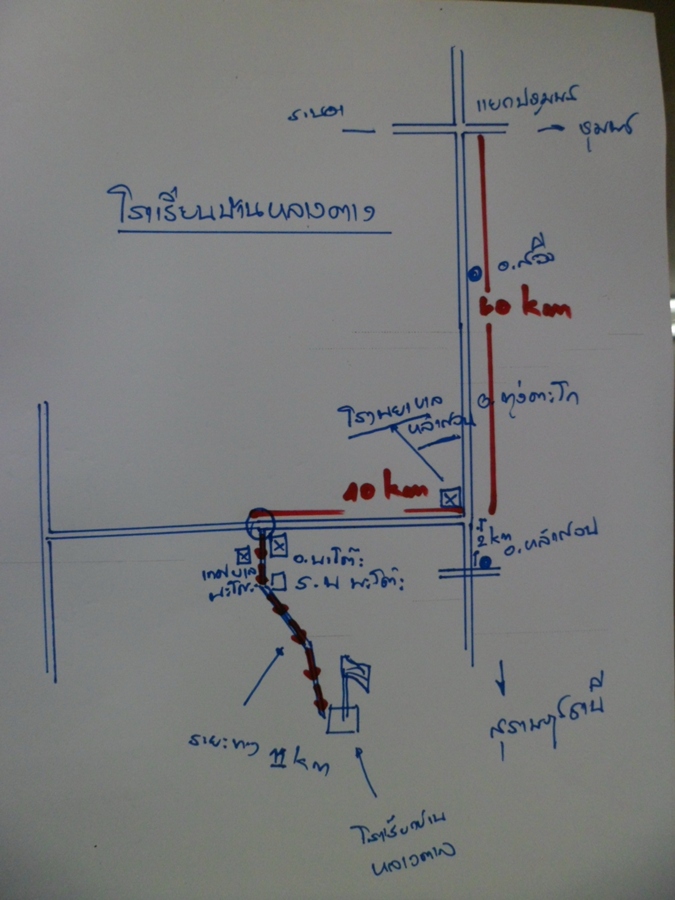 ระนอง
แยกปฐมพร
ชุมพร
โรงเรียนบ้านหลางตาง
อ.สวี
60 km
อ.ทุ่งตะโก
โรงพยาบาล
หลังสวน
40 km
2 km
อ.หลังสวน
อ.พะโต๊ะ
เทศบาล
พะโต๊ะ
ร.พ พะโต๊ะ
สุราษฎร์ธานี
ระยะทาง 11 km
โรงเรียนบ้าน
หลางตาง